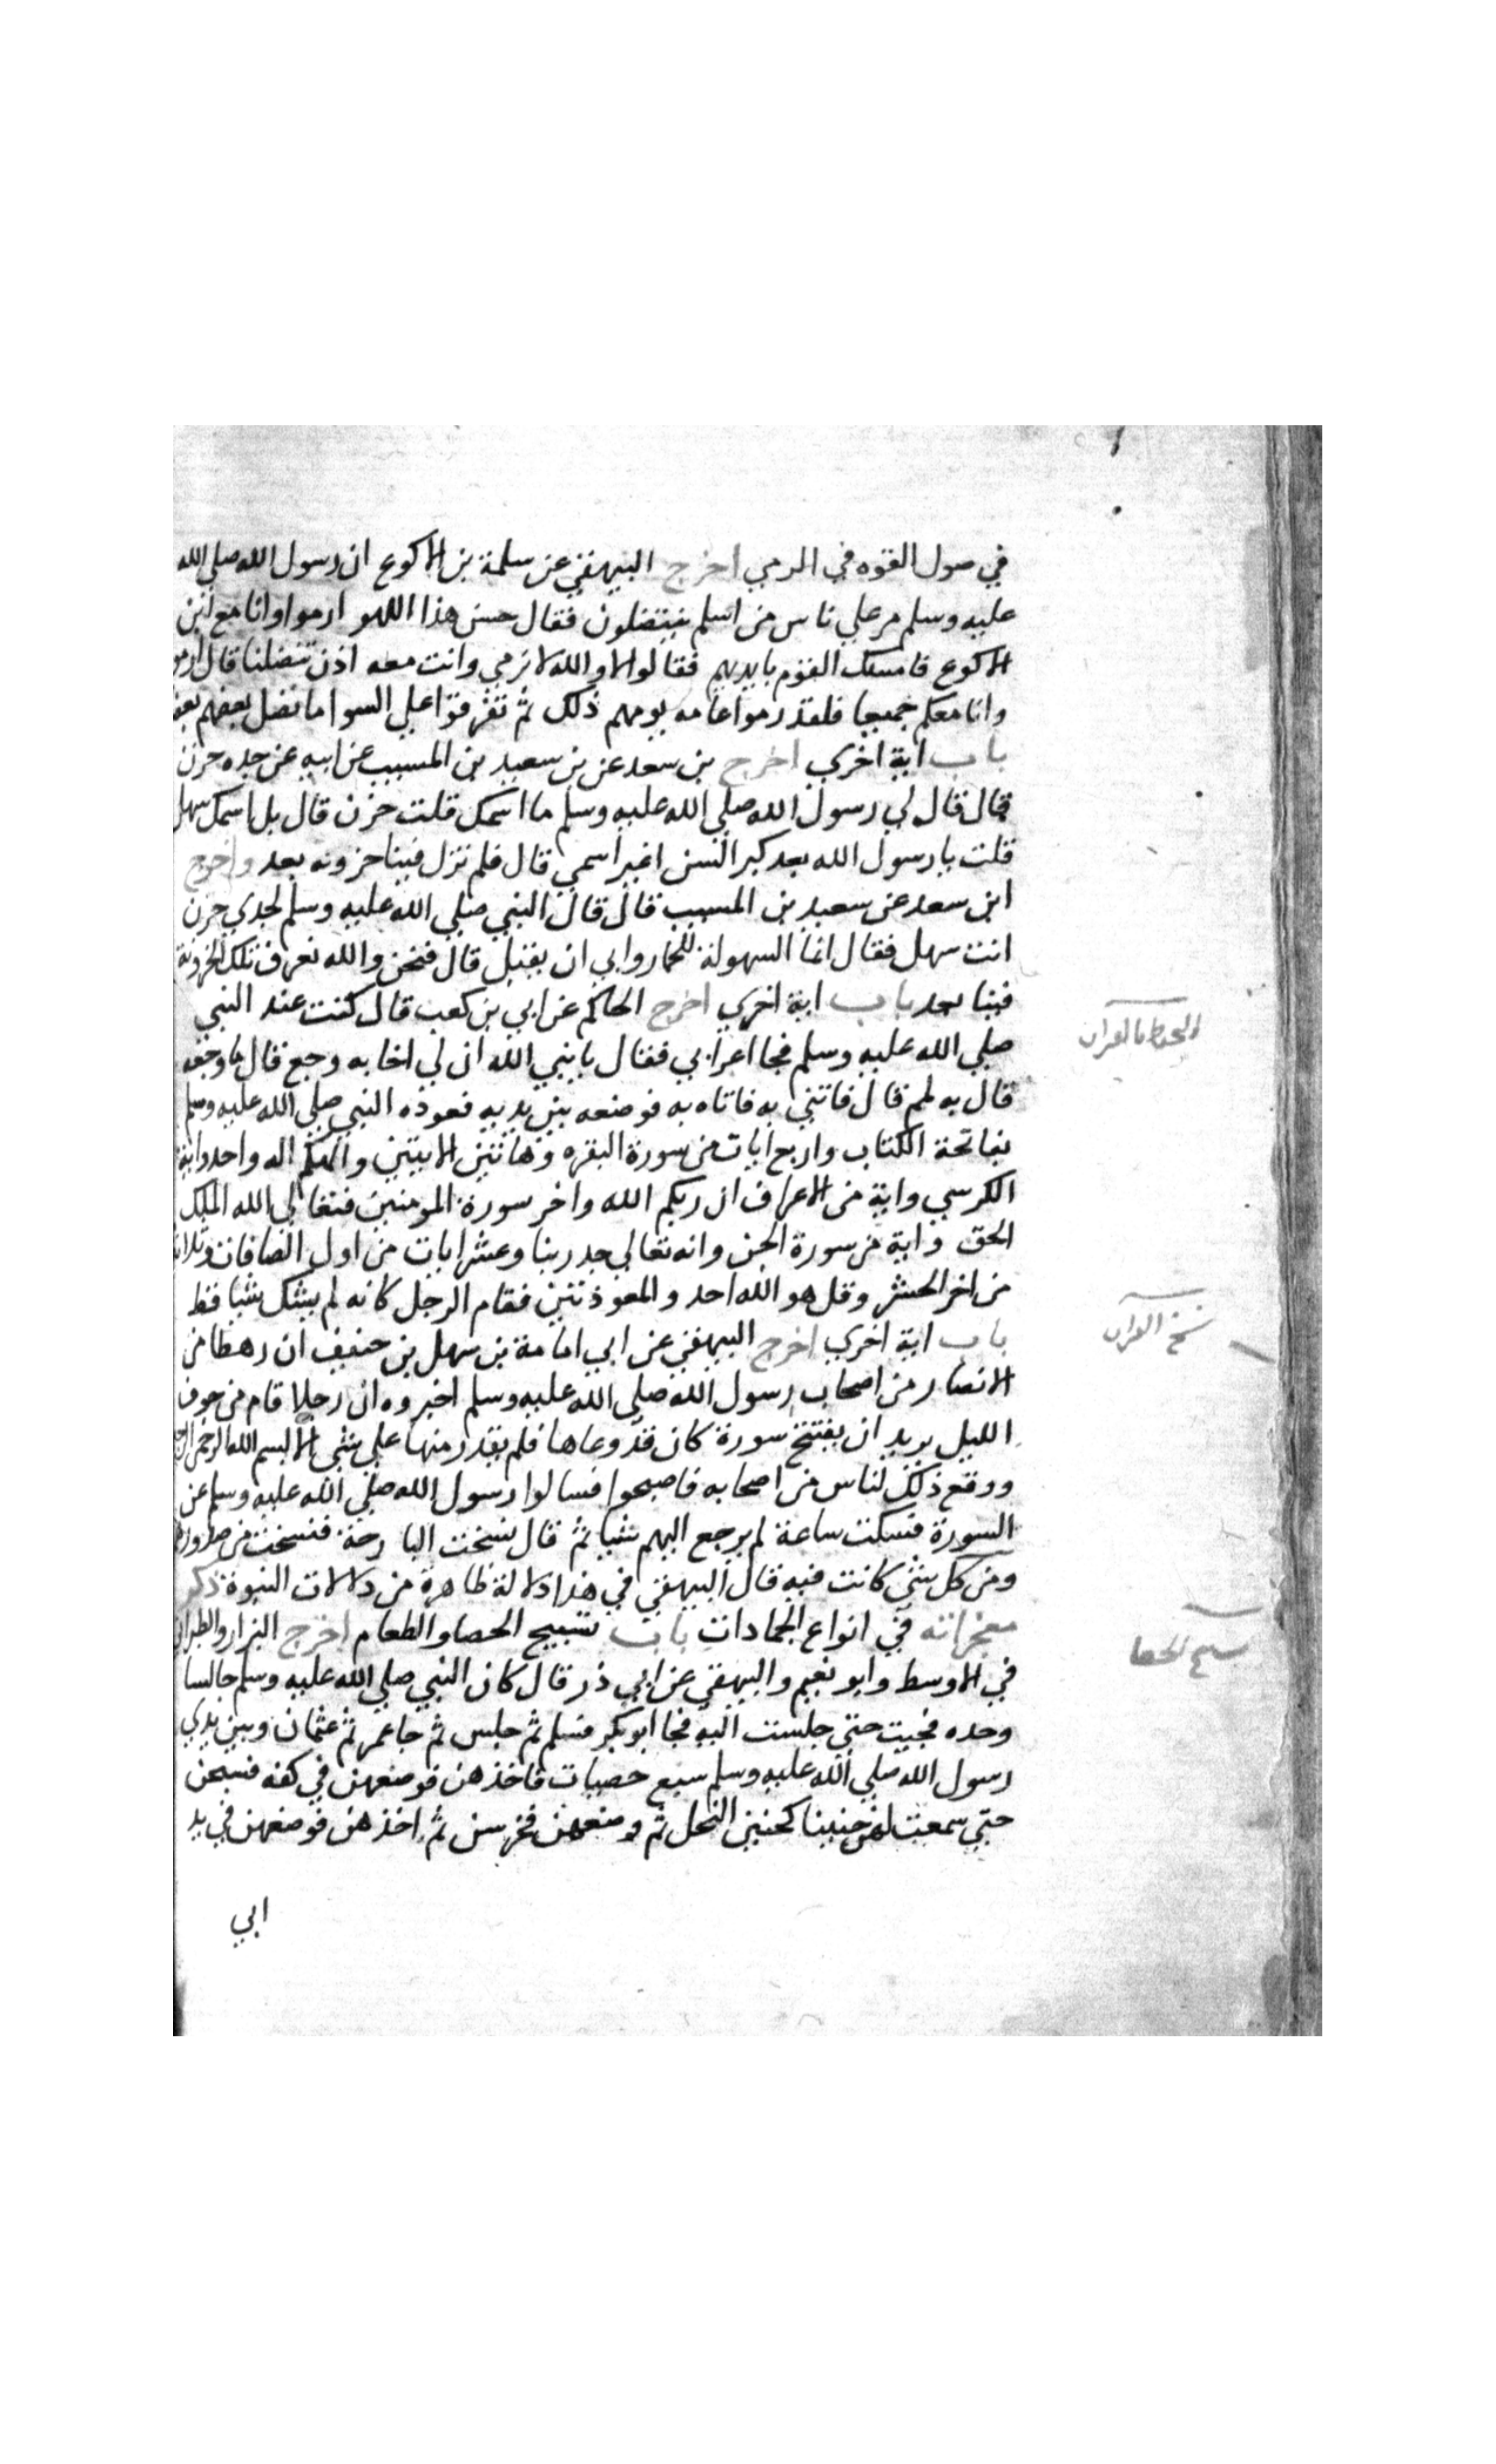 في صول القوه في الرمي اخرج البيهقي عن سلمة بن الاكوع ان رسول الله صلي الله
عليه وسلم مر علي ناس من اسلم ينتضلون فقال حسن هذا اللهو ارموا وانا مع ابن
الاكوع فامسك القوم بايديهم فقالوا لا والله لا نرمي وانت معه اذن تنضلنا قال ارموا
وانا معكم جميعا فلقد رموا عامه يومهم ذلك ثم تفرقوا علي السوا ما نضل بعضهم بعضا
باب اية اخري اخرج بن سعد عن بن سعيد بن المسيب عن ابيه عن جده حزن
قال قال لي رسول الله صلي الله عليه وسلم ما اسمك قلت حزن قال بل اسمك سهل
قلت يا رسول الله بعد كبر السن اغير اسمي قال فلم تزل فينا حزونه بعد واخرج
ابن سعد عن سعيد بن المسيب قال قال النبي صلي الله عليه وسلم لجدي حزن
انت سهل فقال انما السهولة للحمار وابي ان يقبل قال فنحن والله نعرف تلك الحزونة
فينا بعد باب اية اخري اخرج الحاكم عن ابي بن كعب قال كنت عند النبي
صلي الله عليه وسلم فجا اعرابي فقال يا نبي الله ان لي اخا به وجع قال ما وجعه
قال به لمم قال فاتني به فاتاه به فوضعه بين يديه فعوذه النبي صلي الله عليه وسلم
بفاتحة الكتاب واربع ايات من سورة البقره وهاتين الايتين والهكم اله واحد واية
الكرسي واية من الاعراف ان ربكم الله واخر سورة المومنين فتعالي الله الملك
الحق واية من سورة الجن وانه تعالي جد ربنا وعشر ايات من اول الصافات وثلاث
من اخر الحشر وقل هو الله احد والمعوذتين فقام الرجل كانه لم يشك شيا قط
باب اية اخري اخرج البيهقي عن ابي امامة بن سهل بن حنيف ان رهطا من
الانصار من اصحاب رسول الله صلي الله عليه وسلم اخبروه ان رجلا قام من جوف
الليل يريد ان يفتتح سورة كان قد وعاها فلم يقدر منها علي شي الا بسم الله الرحمن الرحيم
ووقع ذلك لناس من اصحابه فاصبحوا فسالوا رسول الله صلي الله عليه وسلم عن
السورة فسكت ساعة لم يرجع اليهم شيا ثم قال نسخت البارحة فنسخت من صدورهم
ومن كل شي كانت فيه قال البيهقي في هذا دلالة ظاهرة من دلالات النبوة ذكر
معجزاته في انواع الجمادات باب تسبيح الحصا والطعام اخرج البزار والطبراني
في الاوسط وابو نعيم والبيهقي عن ابي ذر قال كان النبي صلي الله عليه وسلم جالسا
وحده فجيت حتي جلست اليه فجا ابو بكر فسلم ثم جلس ثم جا عمر ثم عثمان وبين يدي
رسول الله صلي الله عليه وسلم سبع حصيات فاخذهن فوضعهن في كفه فسبحن
حتي سمعت لهن حنينا كحنين النحل ثم وضعهن فخرسن ثم اخذهن فوضعهن في يد
ابي
بالقران
نسخ القران
تسبيح الحصا